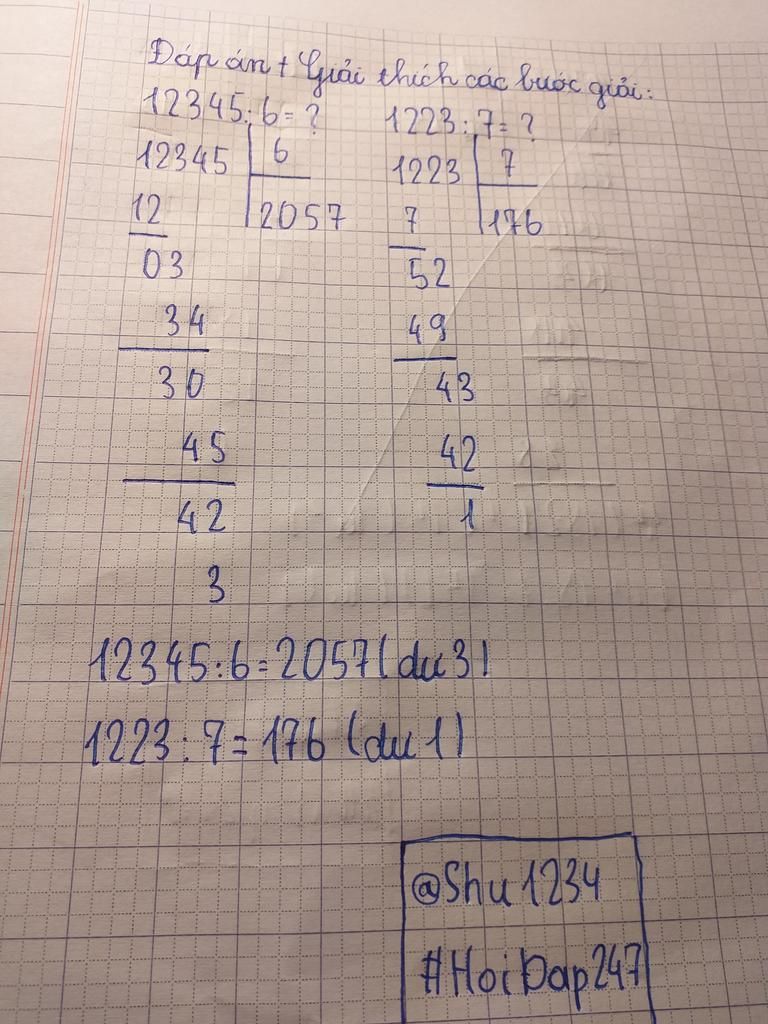 Đáp án + Giải thích các bước giải:
12345:6=? 1223:7=?
12345 6 1223 7
12 2057 7 176
03 52
34 49
30 43
45 42
42 1
3
12345:6=2057(dư3)
1223:7=176(dư1)
@Shu1234
#HoiDap247